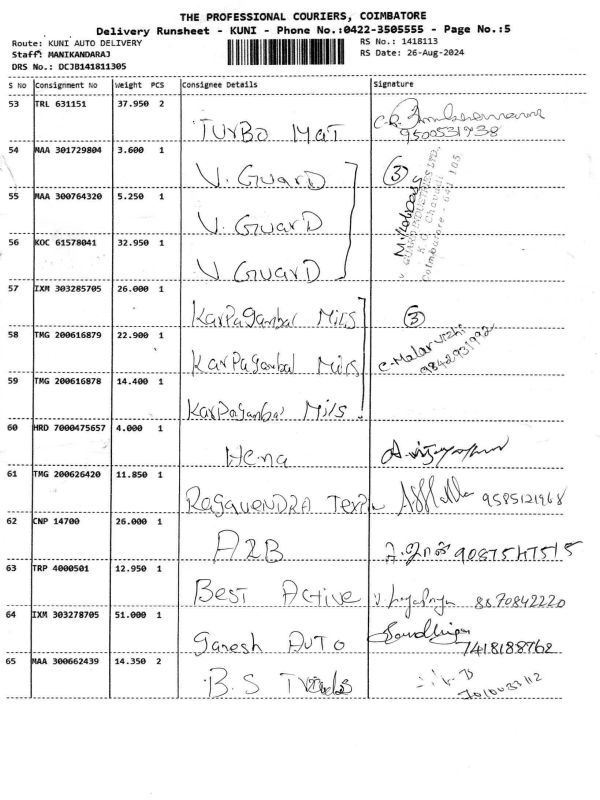 THE PROFESSIONAL COURIERS, COIMBATORE
Delivery Runsheet - KUNI - Phone No.:0422-3505555 - Page No.:5
Route: KUNI AUTO DELIVERY
RS No.: 1418113
Staff: MANIKANDARAJ
RS Date: 26-Aug-2024
DRS No.: DCJB141811305
S No Consignment No Weight PCS Consignee Details Signature
53 TRL 631151 37.950 2
TURBO MAT 9500531938
54 MAA 301729804 3.600 1
V. GuarD 3
55 MAA 300764320 5.250 1
V. GuarD
V GUARD INDUSTRIES LTD.,
K.G. Chavadi
Coimbatore - 641 105
56 KOC 61578041 32.950 1
V GuarD
57 IXM 303285705 26.000 1
KarPaganbal Mills 3
58 TMG 200616879 22.900 1
KarPaganbal Mills C. Malarvizhi
9842931992
59 TMG 200616878 14.400 1
KarPaganbal Mills
60 HRD 7000475657 4.000 1
Hema
61 TMG 200626420 11.850 1
RagavENDRA 9585121968
62 CNP 14700 26.000 1
A2B 9087547515
63 TRP 4000501 12.950 1
BEST Active 8870842220
64 IXM 303278705 51.000 1
Ganesh AUTO 7418188762
65 MAA 300662439 14.350 2
B.S